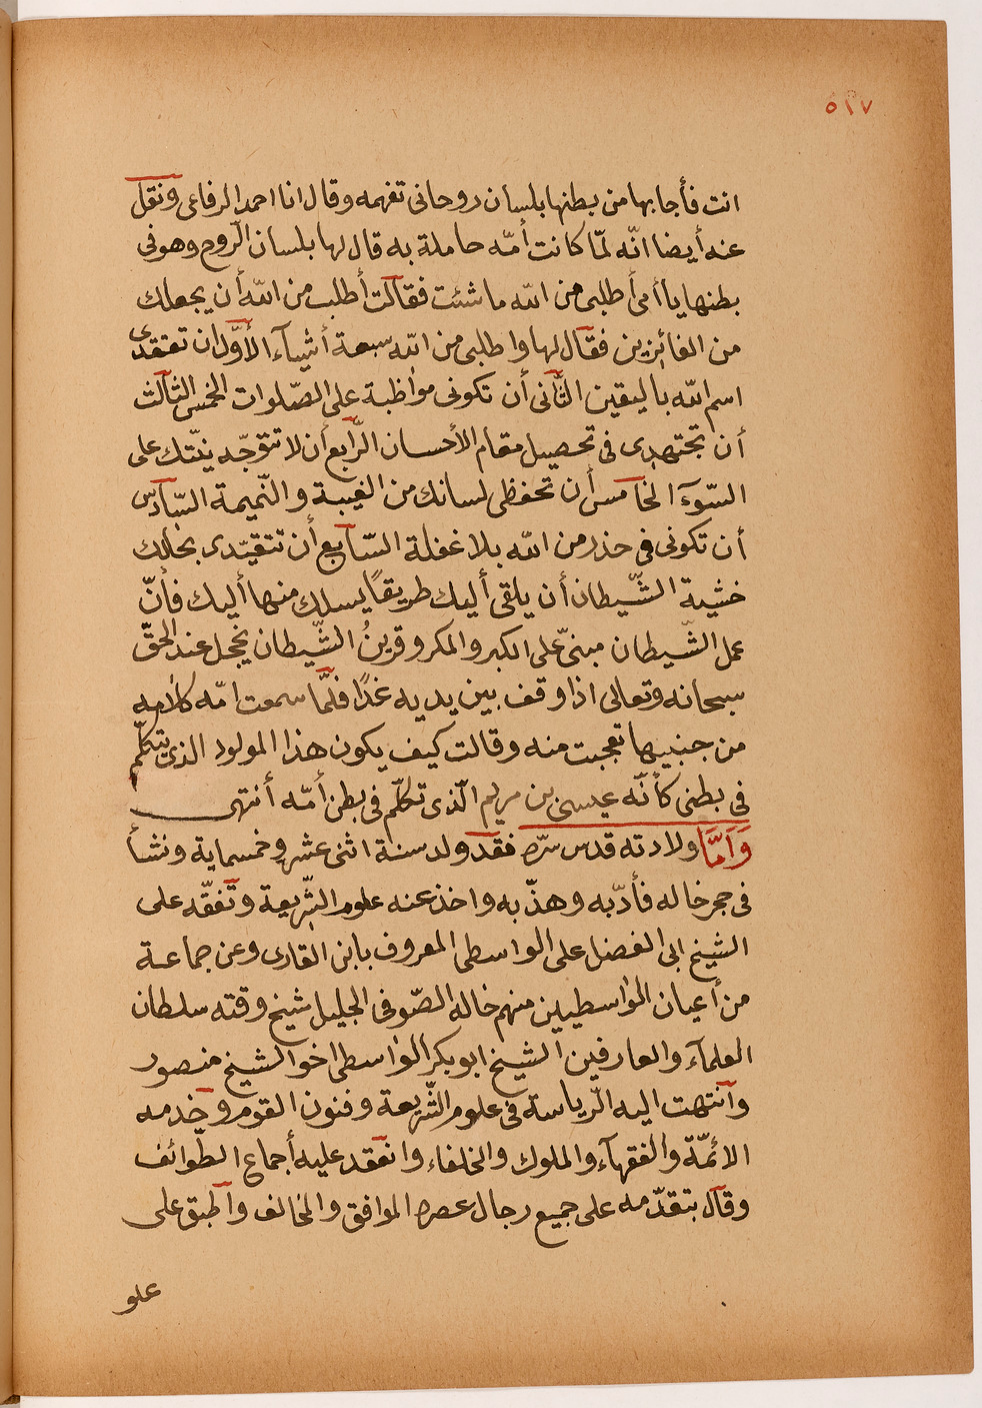 ٥١٧
انت فأجابها من بطنها بلسان روحانى تفهمه وقال انا احمد الرفاعى ونقل
عنه أيضا انّه لمّا كانت أمّه حاملة به قال لها بلسان الرّوح وهو فى
بطنها يا أمى أطلبى من اللّه ما شئت فقالت أطلب من اللّه أن يجعلك
من الفائزين فقال لها واطلبى من اللّه سبعة أشيآء الأوّل ان تعتقدى
اسم اللّه باليقين الثّانى أن تكونى مواظبة على الصّلوات الخمس الثالث
أن تجتهدى فى تحصيل مقام الأحسان الرّابع أن لا تتوجّه ينّتك على
السّوء الخامس أن تحفظى لسانك من الغيبة والنّميمة السّادس
أن تكونى فى حذر من اللّه بلا غفلة السّابع أن تتقيّدى بخلك
خشية الشّيطان أن يلقى أليك طريقًا يسلك منها أليك فأنّ
عمل الشّيطان مبنىّ على الكبر والمكر وقرينُ الشّيطان يخجل عند الحقّ
سبحانه وتعالى اذا وقف بين يديه غدًا فلمّا سمعت امّه كلامه
من جنبيها تعجبت منه وقالت كيف يكون هذا المولود الذى يتكلّم
فى بطنى كأنّه عيسى بن مريم الّذى تكلّم فى بطن أمّه أنتهى
وَأمَّا ولادته قدس سرّه فقد ولد سنة اثنى عشر وخمسماية ونشأ
فى حجر خاله فأدّبه وهذّبه واخذ عنه علوم الشّريعة وتفقّه على
الشيخ ابى الفضل على الواسطى المعروف بابن القارى وعن جماعة
من أعيان الواسطيين منهم خاله الصّوفى الجليل شيخ وقته سلطان
العلمآء والعارفين الشيخ ابو بكر الواسطى اخو الشيخ منصور
وآنتهت اليه الرّياسة فى علوم الشّريعة وفنون القوم وخدمه
الائمّة والفقهآء والملوك والخلفاء وانعقد عليه أجماع الطّوائف
وقال بتقدّمه على جميع رجال عصره الموافق والمخالف وآطبق على
علو